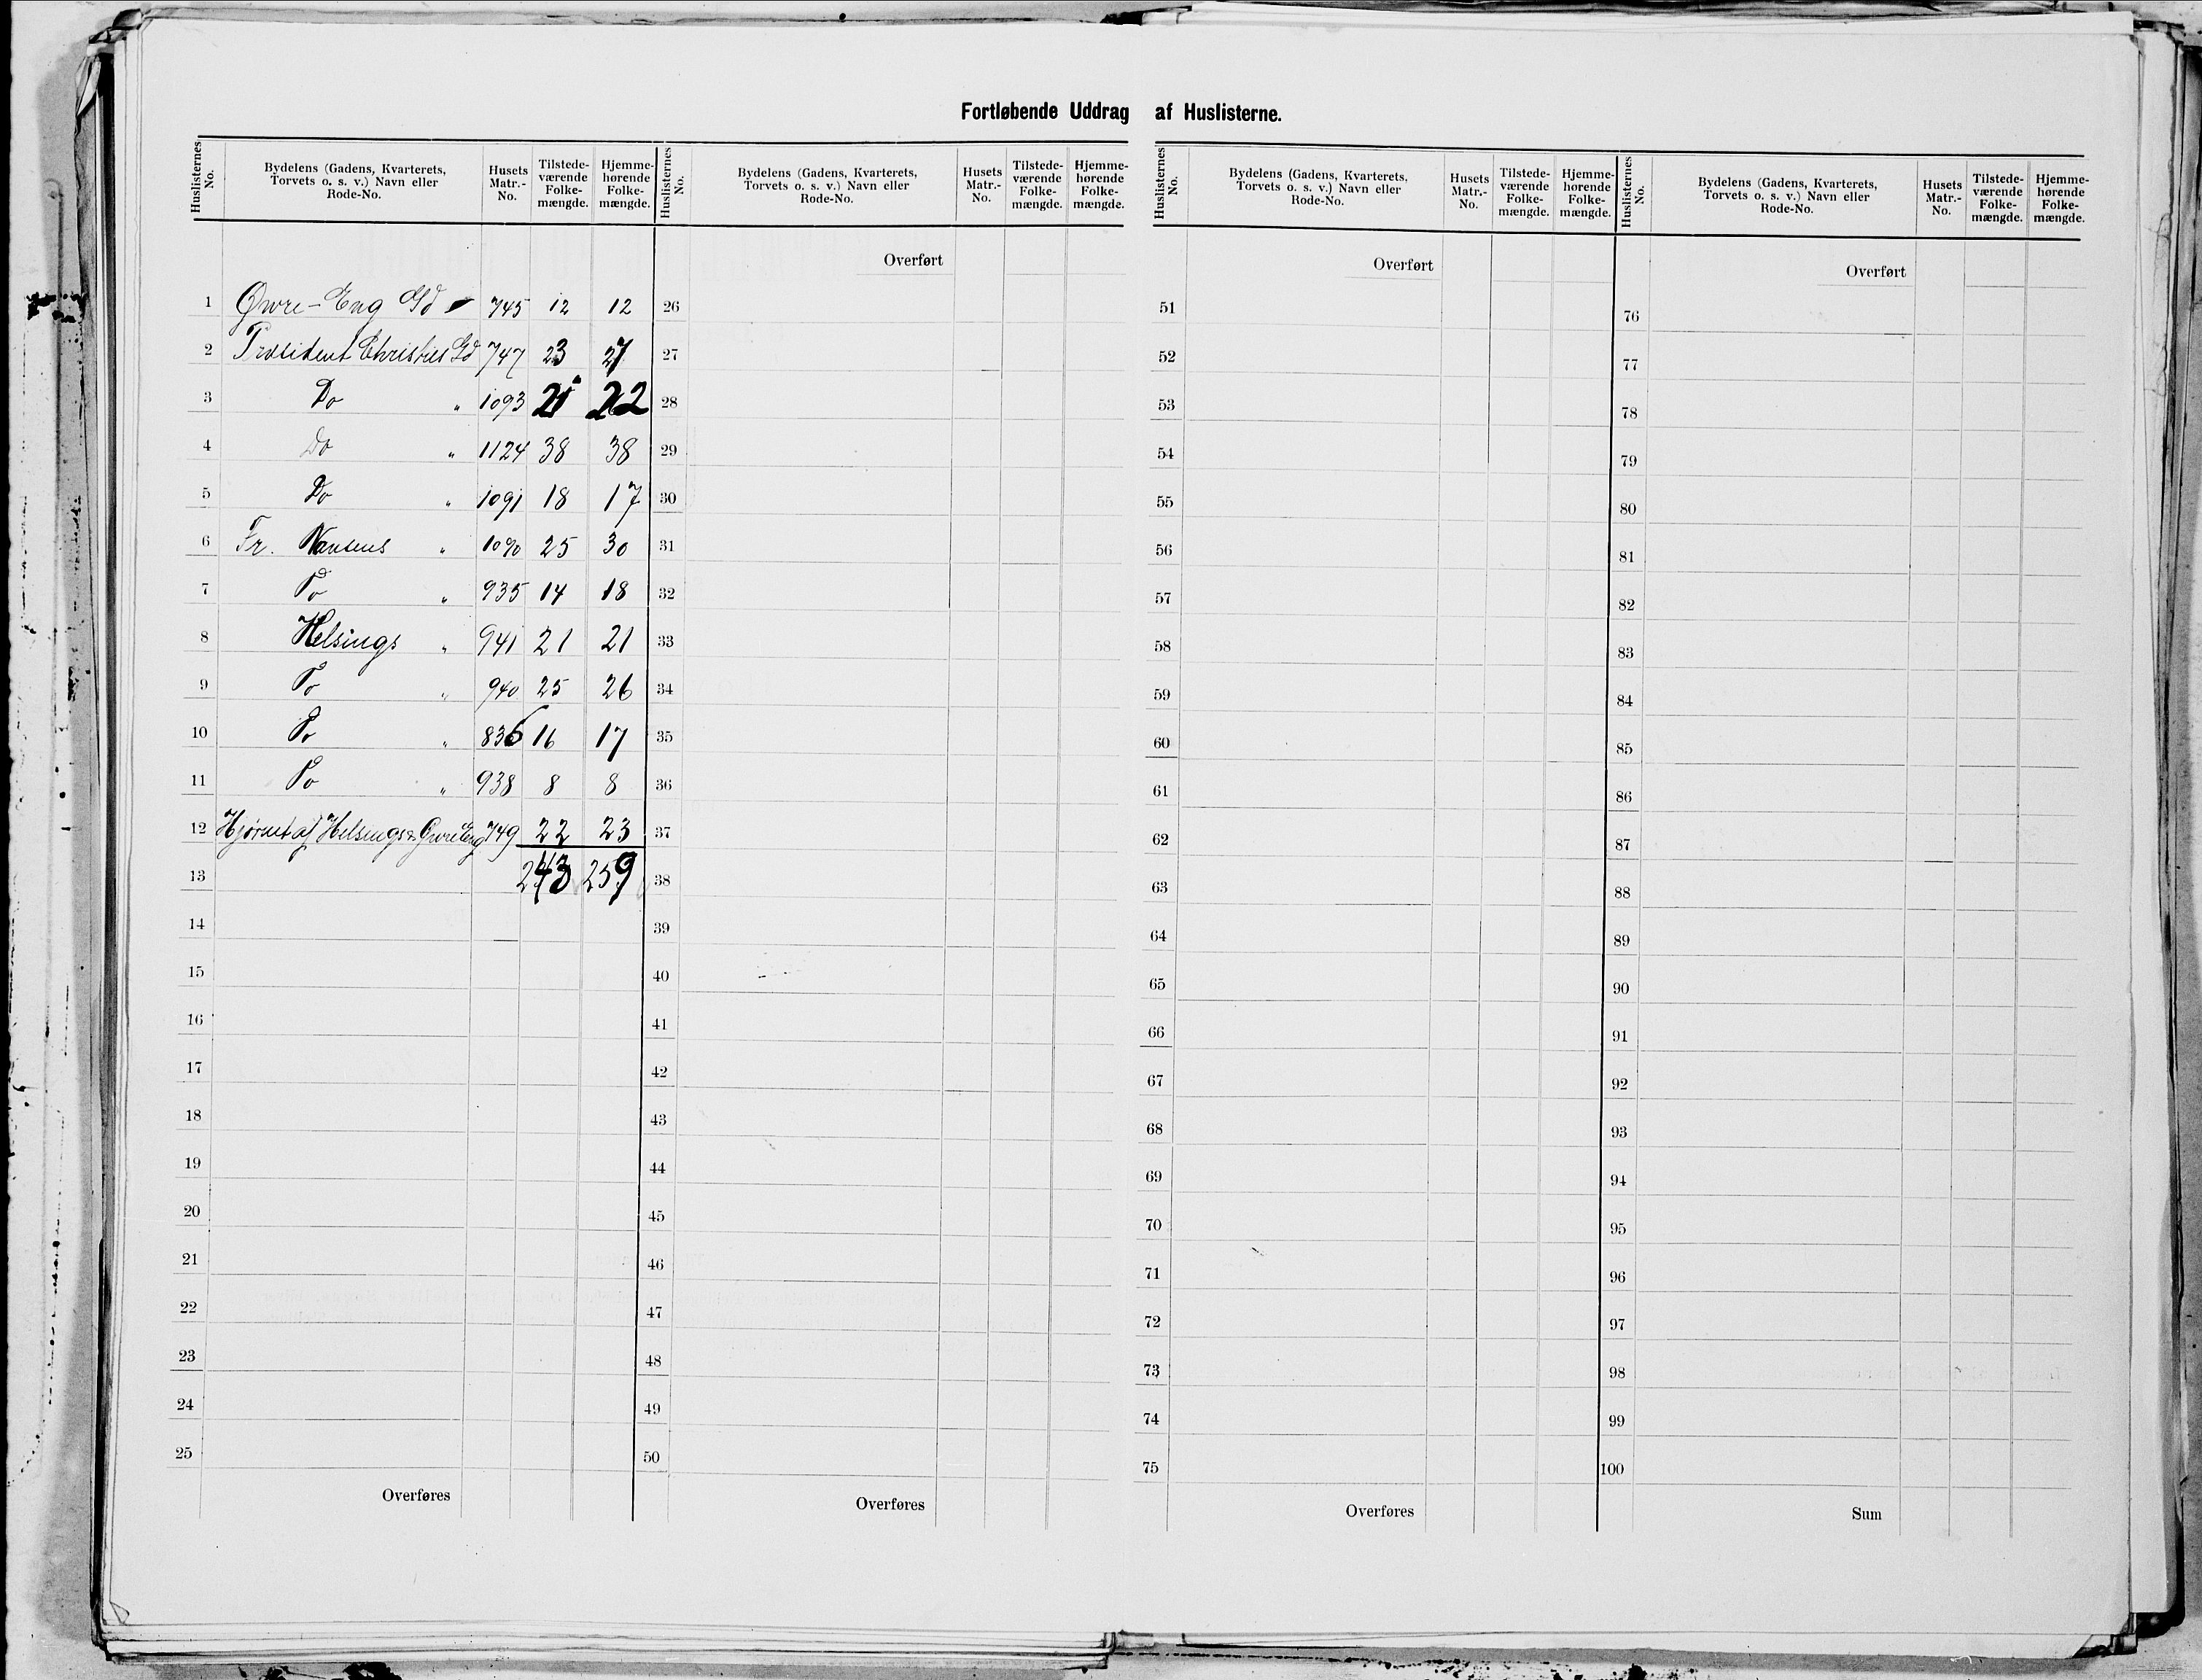 Fortløbende Uddrag af Huslisterne.
Huslisternes No. Bydelens (Gadens, Kvarterets, Torvets o. s. v.) Navn eller Rode-No. Husets Matr.-No. Tilstedeværende Folkemængde. Hjemmehørende Folkemængde.
1 Øvre-Eng Gd 745 12 12
2 Præsident Christies Gd 747 23 27
3 Do " 1093 21 22
4 Do " 1124 38 38
5 Do " 1091 18 17
6 Fr. Nansens " 1090 25 30
7 Do " 935 14 18
8 Helsings " 941 21 21
9 Do " 940 25 26
10 Do " 836 16 17
11 Do " 938 8 8
12 Hjørnet af Helsings & Øvre Eng 749 22 23
13 243 259
14
15
16
17
18
19
20
21
22
23
24
25
Overføres
Huslisternes No. Bydelens (Gadens, Kvarterets, Torvets o. s. v.) Navn eller Rode-No. Husets Matr.-No. Tilstede-værende Folke-mængde. Hjemme-hørende Folke-mængde.
Overført
26
27
28
29
30
31
32
33
34
35
36
37
38
39
40
41
42
43
44
45
46
47
48
49
50
Overføres
Huslisternes No. Bydelens (Gadens, Kvarterets, Torvets o. s. v.) Navn eller Rode-No. Husets Matr.-No. Tilstede-værende Folke-mængde. Hjemme-hørende Folke-mængde.
Overført
51
52
53
54
55
56
57
58
59
60
61
62
63
64
65
66
67
68
69
70
71
72
73
74
75
Overføres
Huslisternes No. Bydelens (Gadens, Kvarterets, Torvets o. s. v.) Navn eller Rode-No. Husets Matr.-No. Tilstede-værende Folke-mængde. Hjemme-hørende Folke-mængde.
Overført
76
77
78
79
80
81
82
83
84
85
86
87
88
89
90
91
92
93
94
95
96
97
98
99
100
Sum